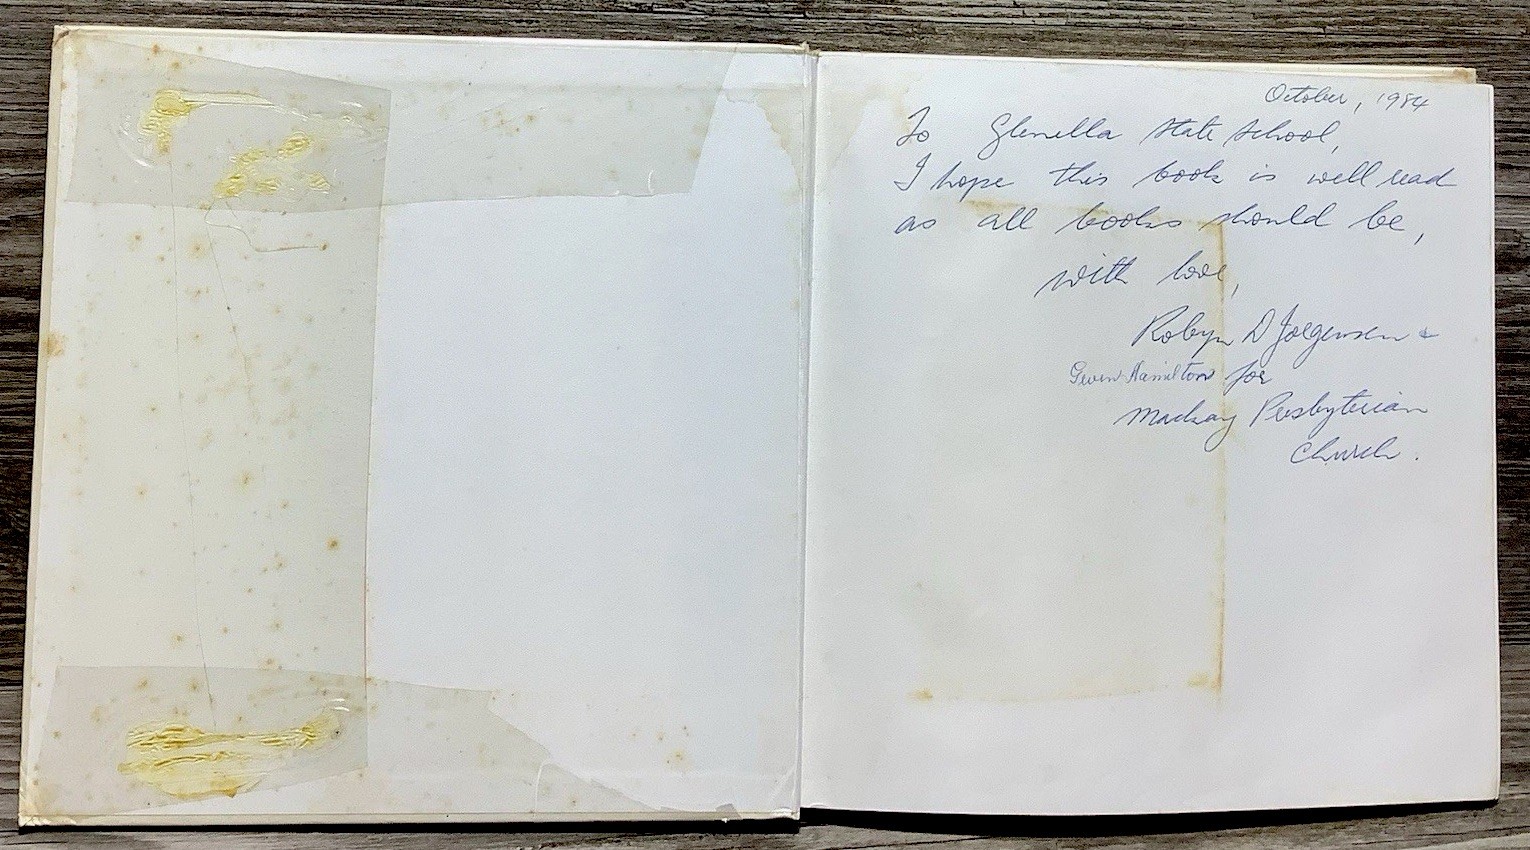 October, 1984
To Glenella State School,
I hope this book is well read
as all books should be,
with love,
Robyn D Jorgensen &
Gwen Hamilton for
Mackay Presbyterian
Church.